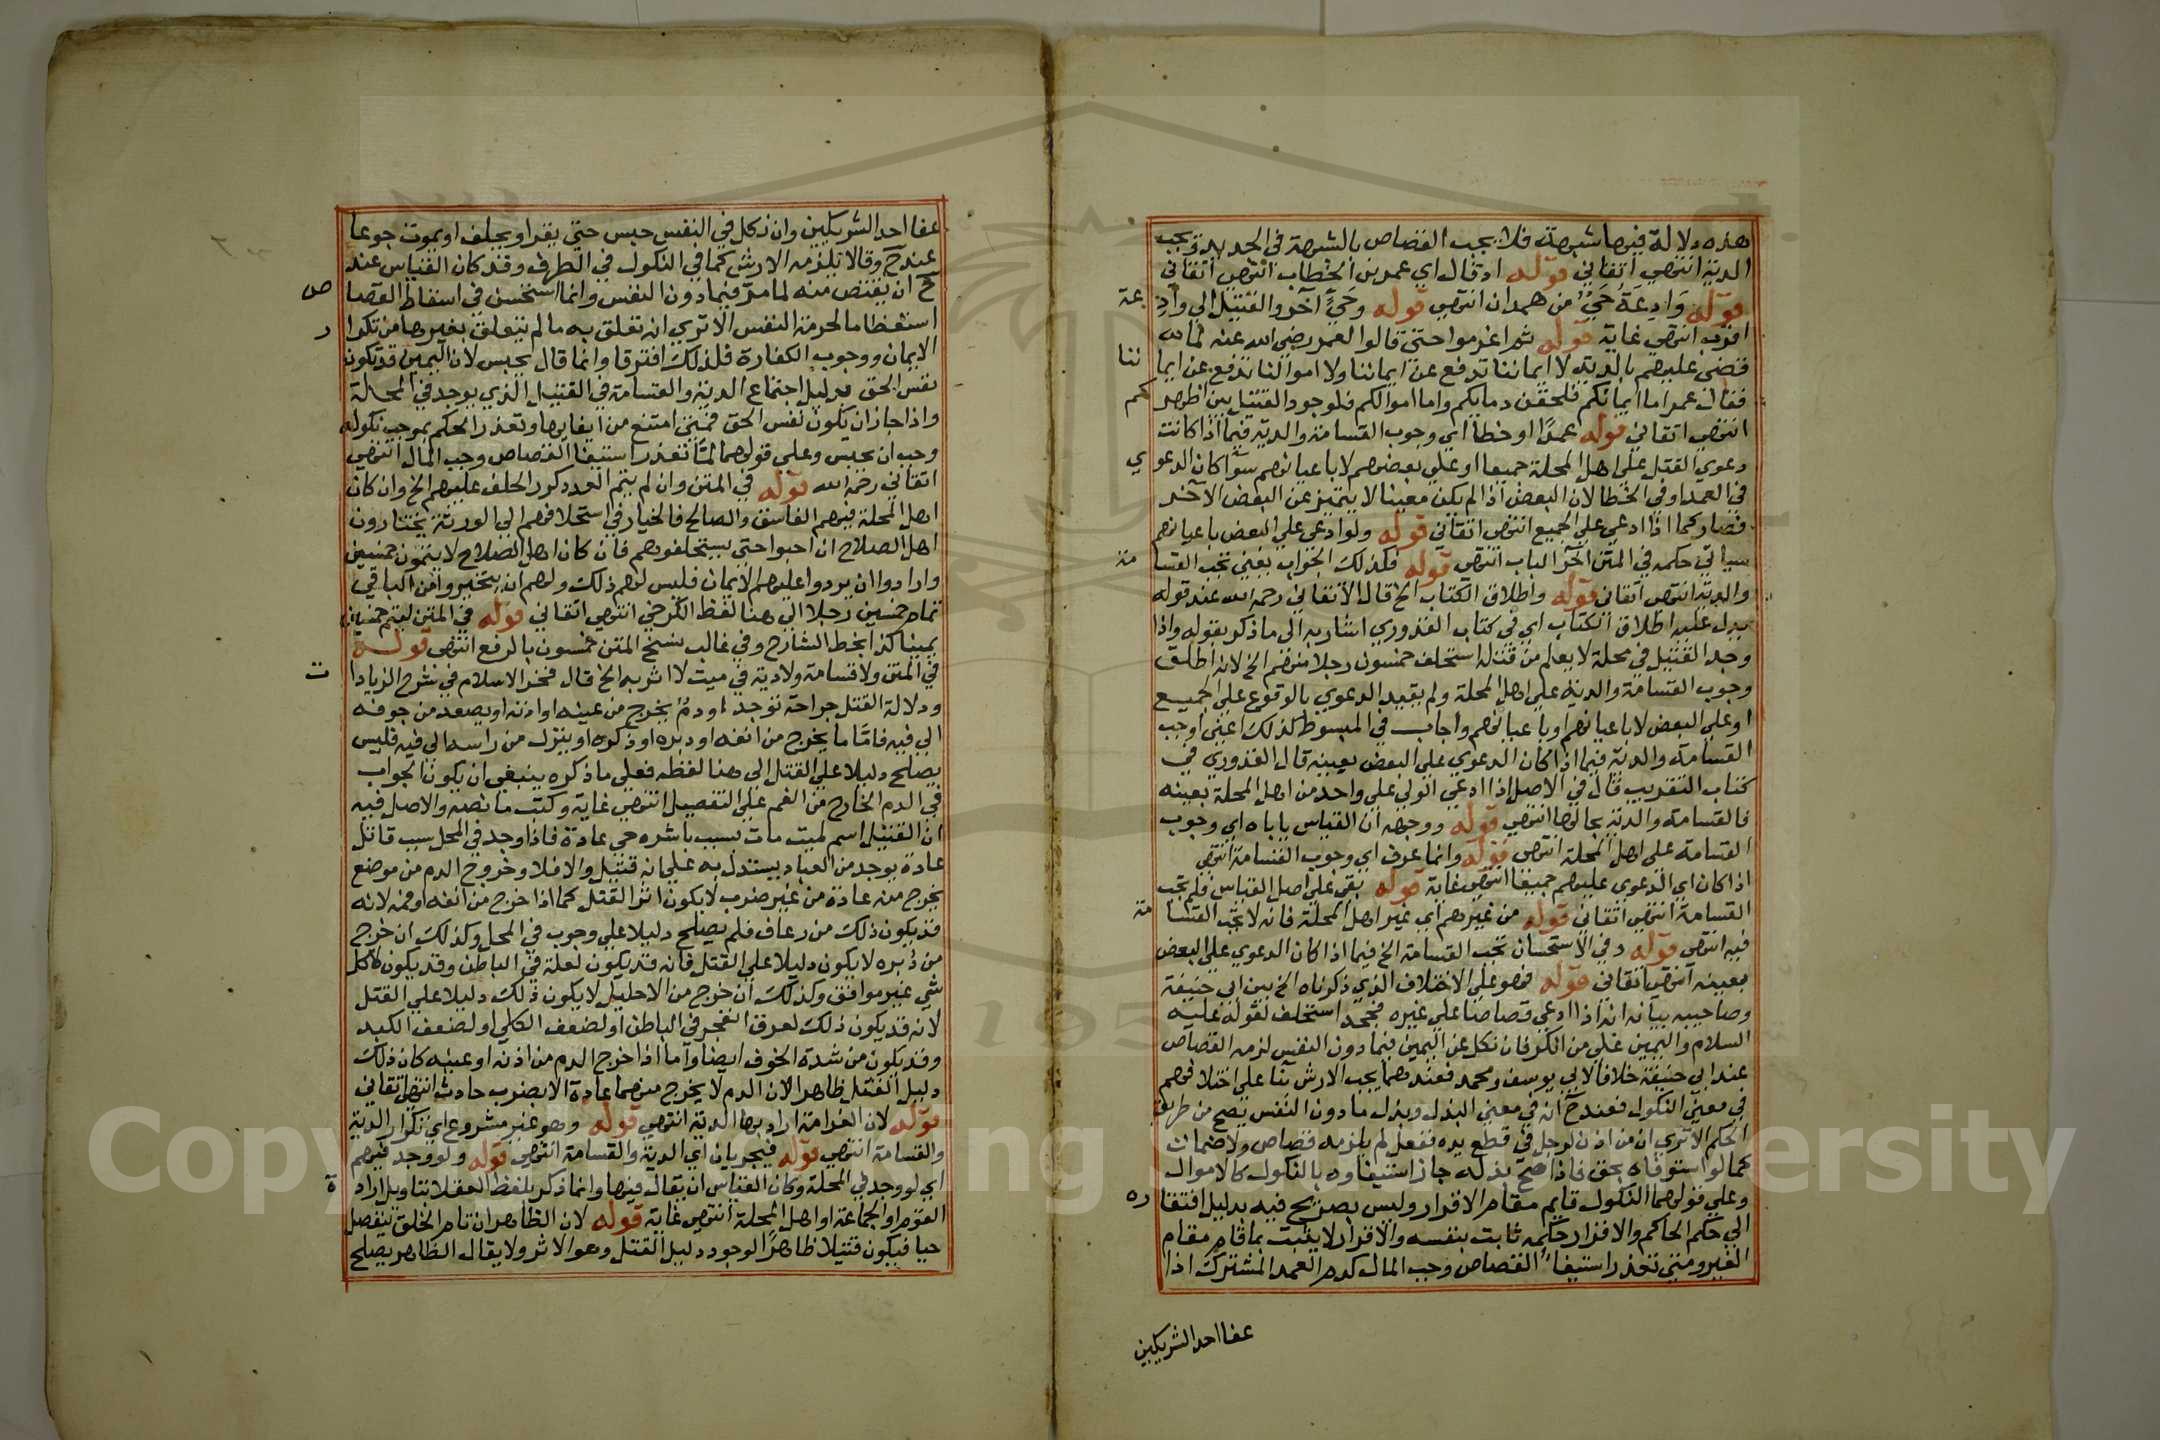 هذه دلالة فيها شبهة فلا يجب القصاص بالشبهة في الحديد ويجب
الدية انتهى اتقاني قوله اذ قال اي عمر بن الخطاب انتهى اتقاني
قوله وَادِعَةُ حَيٌّ من همدان انتهى قوله وحيٍّ آخر والقتيل الى وادعة
اقرب انتهى غاية قوله ثم اغرموا حتى قالوا لعمر رضي الله عنه لما
قضى عليهم بالدية لا ايماننا تدفع عن ايماننا ولا اموالنا تدفع عن ايماننا
فقال عمر اما ايمانكم فلحقن دمايكم واما اموالكم فلوجود القتيل بين اظهركم
انتهى اتقاني قوله عمدًا او خطأ اي وجوب القسامة والدية فيما اذا كانت
دعوي القتل على اهل المحلة جميعا او على بعضهم لا باعيانهم سوآ كان الدعوي
في العمد او في الخطا لان البعض اذا لم يكن معينا لا يتميز عن البعض الآخر
فصار كما اذا ادعى على الجميع انتهى اتقاني قوله ولو ادعى على البعض باعيانهم
سياتي حكمه في المتن آخر الباب انتهى قوله فكذلك الجواب يعني تجب القسامة
والدية انتهى اتقاني قوله واطلاق الكتاب الخ قال الاتقاني رحمه الله عند قوله
يدل عليه اطلاق الكتاب اي في كتاب القدوري اشار به الى ما ذكر بقوله واذا
وجد القتيل في محلة لا يعلم من قتله استحلف خمسون رجلا منهم الخ لانه اطلق
وجوب القسامة والدية على اهل المحلة ولم يقيد الدعوي بالوقوع على الجميع
او على البعض لا باعيانهم او باعيانهم واجاب في المبسوط كذلك اعني اوجب
القسامة والدية فيما اذا كان الدعوي على البعض بعينه قال القدوري في
كتاب التقريب قال في الاصل اذا ادعى الولى على واحد من اهل المحلة بعينه
فالقسامة والدية بحالها انتهى قوله ووجهه ان القياس ياباه اي وجوب
القسامة على اهل المحلة انتهى قوله وانما عرف اي وجوب القسامة انتهى
اذا كان اي الدعوي عليهم جميعا انتهى غاية قوله بقي على اصل القياس فلم تجب
القسامة انتهى اتقاني قوله من غيرهم اي غير اهل المحلة فانه لا تجب القسامة
فيه انتهى قوله وفي الاستحسان تجب القسامة الخ فيما اذا كان الدعوي على البعض
بعينه انتهى اتقاني قوله فهو على الاختلاف الذي ذكرناه الخ بين ابي حنيفة
وصاحبيه بيانه انه اذا ادعى قصاصا على غيره فجحد استحلف لقوله عليه
السلام واليمين على من انكر فان نكل عن اليمين فيما دون النفس لزمه القصاص
عند ابي حنيفة خلافا لابي يوسف ومحمد فعندهما يجب الارش بنا على اختلافهم
في معنى النكول فعند ح انه في معنى البذل وبذل ما دون النفس يصح من طريق
الحكم الا تري ان من اذن لرجل في قطع يده ففعل لم يلزمه قصاص ولا ضمان
كما لو استوفاه بحق فاذا صح بذله جاز استيفاوه بالنكول كالاموال
وعلى قولهما النكول قايم مقام الاقرار وليس بصريح فيه بدليل افتقاره
الى حكم الحاكم والاقرار حكمه ثابت بنفسه والاقرار لا يثبت بما قام مقام
الغير ومتى تعذر استيفاء القصاص وجب المال كدم العمد المشترك اذا
عفا احد الشريكين
عفا احد الشريكين وان نكل في النفس حبس حتى يقر او يحلف او يموت جوعا
عند ح وقالا يلزمه الارش كما في النكول في الطرف وقد كان القياس عند
ح ان يقتص منه لما مر فيما دون النفس وانما استحسن في اسقاط القصاص
استعظاما لحرمة النفس الا تري انه تعلق به ما لم يتعلق بغيرها من تكرار
الايمان ووجوب الكفارة فلذلك افترقا وانما قال يحبس لان اليمين قد تكون
نفس الحق بدليل اجتماع الدية والقسامة في القتيل الذي يوجد في المحلة
واذا جاز ان يكون نفس الحق فمتى امتنع من ايفايها وتعذر الحكم بموجب نكوله
وجب ان يحبس وعلى قولهما لمّا تعذر استيفا القصاص وجب المال انتهى
اتقاني رحمه الله قوله في المتن وان لم يتم العدد كرر الحلف عليهم الخ وان كان
اهل المحلة فيهم الفاسق والصالح فالخيار في استحلافهم الى الورثة يختارون
اهل الصلاح ان احبوا حتى يستحلفوهم فان كان اهل الصلاح لا يتمون خمسين
وارادوا ان يردوا عليهم الايمان فليس لهم ذلك ولهم ان يتخيروا من الباقي
تمام خمسين رجلا الى هنا لفظ الكرخي انتهى اتقاني قوله في المتن ليتم خمسين
يمينا كذا بخط الشارح وفي غالب نسخ المتن خمسون بالرفع انتهى قوله
في المتن ولا قسامة ولا دية في ميت لا اثر به الخ قال فخر الاسلام في شرح الزيادات
ودلالة القتل جراحة توجد او دمٌ يخرج من عينه او اذنه او يصعد من جوفه
الى فيه فامّا ما يخرج من انفه او دبره او ذكره او ينزل من راسه الى فيه فليس
يصلح دليلا على القتل الى هنا لفظه فعلى ما ذكره ينبغي ان يكون الجواب
في الدم الخارج من الفم على التفصيل انتهى غاية وكتب ما نصه والاصل فيه
ان القتيل اسم لميت مات بسبب باشره حي عادة فاذا وجد في المحل سبب قاتل
عادة يوجد من العباد يستدل به على انه قتيل والا فلا وخروج الدم من موضع
يخرج منه عادة من غير ضرب لا يكون اثر القتل كما اذا خرج من انفه او فمه لانه
قد يكون ذلك من رعاف فلم يصلح دليلا على وجوب في المحل وكذلك ان خرج
من دُبره لا يكون دليلا على القتل فانه قد يكون لعلة في الباطن وقد يكون لاكل
شي غير موافق وكذلك ان خرج من الاحليل لا يكون ذلك دليلا على القتل
لانه قد يكون ذلك لعرق انفجر في الباطن او لضعف الكلى او لضعف الكبد
وقد يكون من شدة الخوف ايضا واما اذا خرج الدم من اذنه او عينه كان ذلك
دليل القتل ظاهرا لان الدم لا يخرج منهما عادة الا بضرب حادث انتهى اتقاني
قوله لان الغرامة اراد بها الدية انتهى قوله وهو غير مشروع اي تكرار الدية
والقسامة انتهى قوله فيجريان اي الدية والقسامة انتهى قوله ولو وجد فيهم
اي لو وجد في المحلة وكان القياس ان يقال فيها وانما ذكر بلفظ العقلا بتاويل ارادة
القوم او الجماعة او اهل المحلة انتهى غاية قوله لان الظاهر ان تام الخلق ينفصل
حيا فيكون قتيلا ظاهرًا لوجود دليل القتل وهو الاثر ولا يقال الظاهر يصلح
Copyright © King Saud University